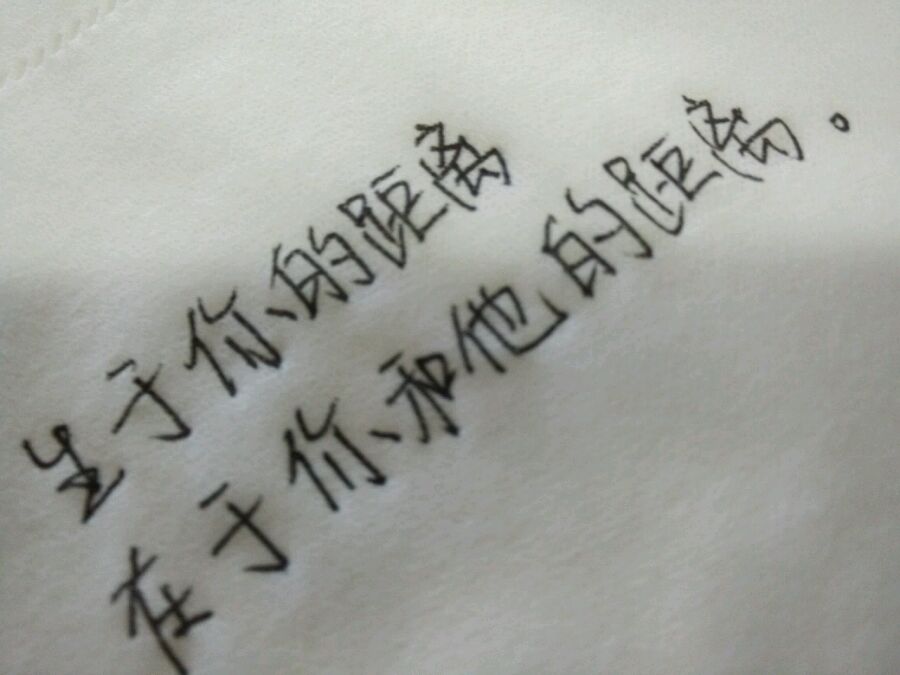 生于你的距离
在于你和他的距离。